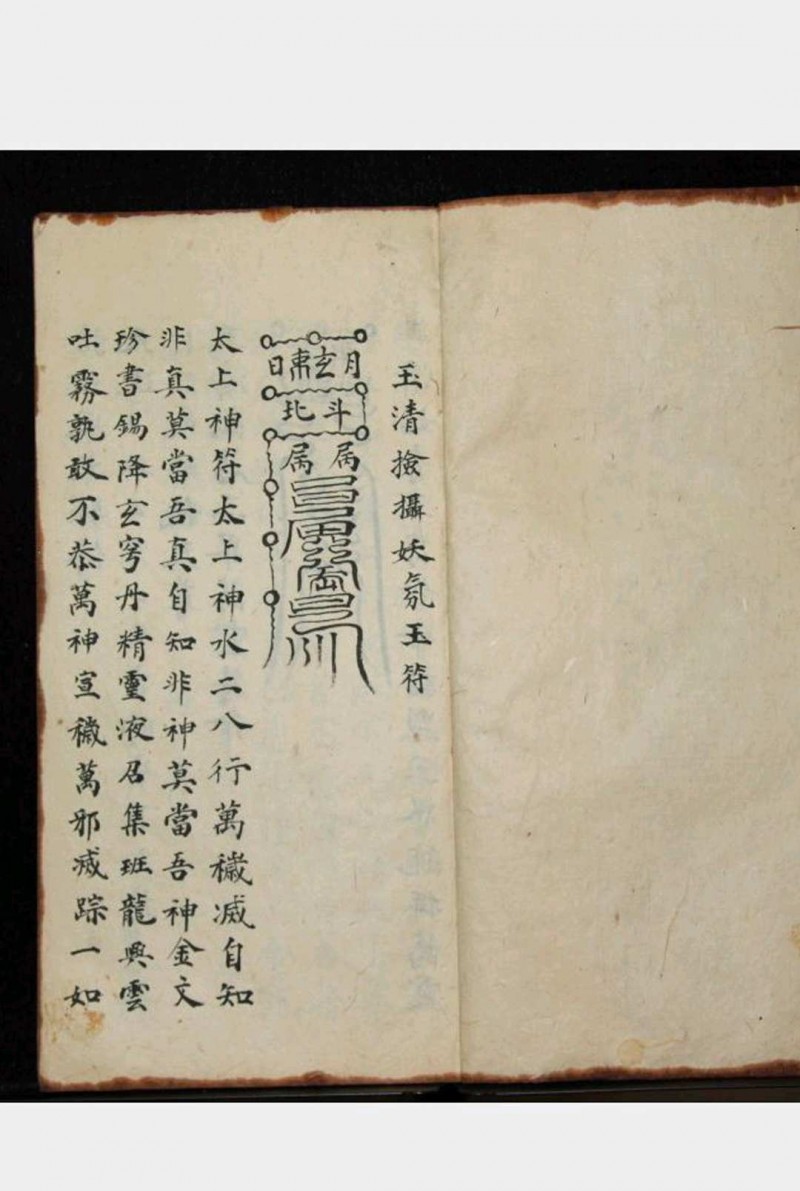 玉清撿攝妖氛玉符
月玄東日
斗北
屌屌
太上神符太上神水二八行萬穢滅自知
非真莫當吾真自知非神莫當吾神金文
珍書錫降玄穹丹精靈液召集班龍興雲
吐霧孰敢不恭萬神宣穢萬邪滅踪一如